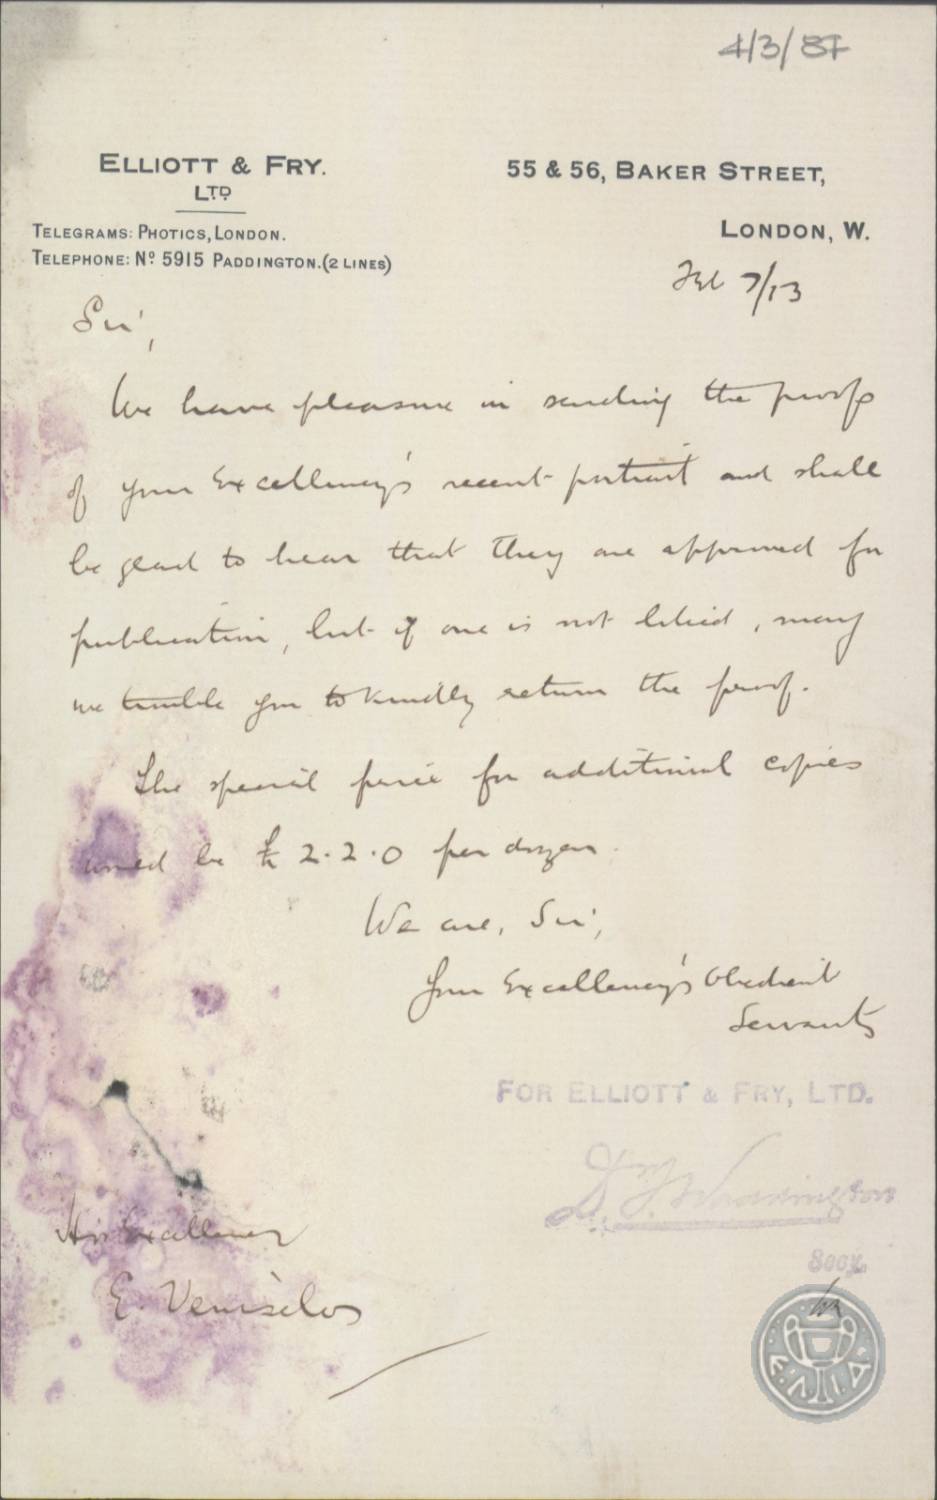 4/3/87
ELLIOTT & FRY.
LTD
TELEGRAMS: PHOTICS, LONDON.
TELEPHONE: No 5915 PADDINGTON. (2 LINES)
55 & 56, BAKER STREET,
LONDON, W.
Feb 7/13
Sir,
We have pleasure in sending the proofs
of your Excellency's recent portrait and shall
be glad to hear that they are approved for
publication, but if one is not liked, may
we trouble you to kindly return the proof.
The special price for additional copies
would be £ 2.2.0 per dozen.
We are, Sir,
Your Excellency's Obedient
Servants
FOR ELLIOTT & FRY, LTD.
His Excellency
E. Veniselos
Ε.Λ.Ι.Α